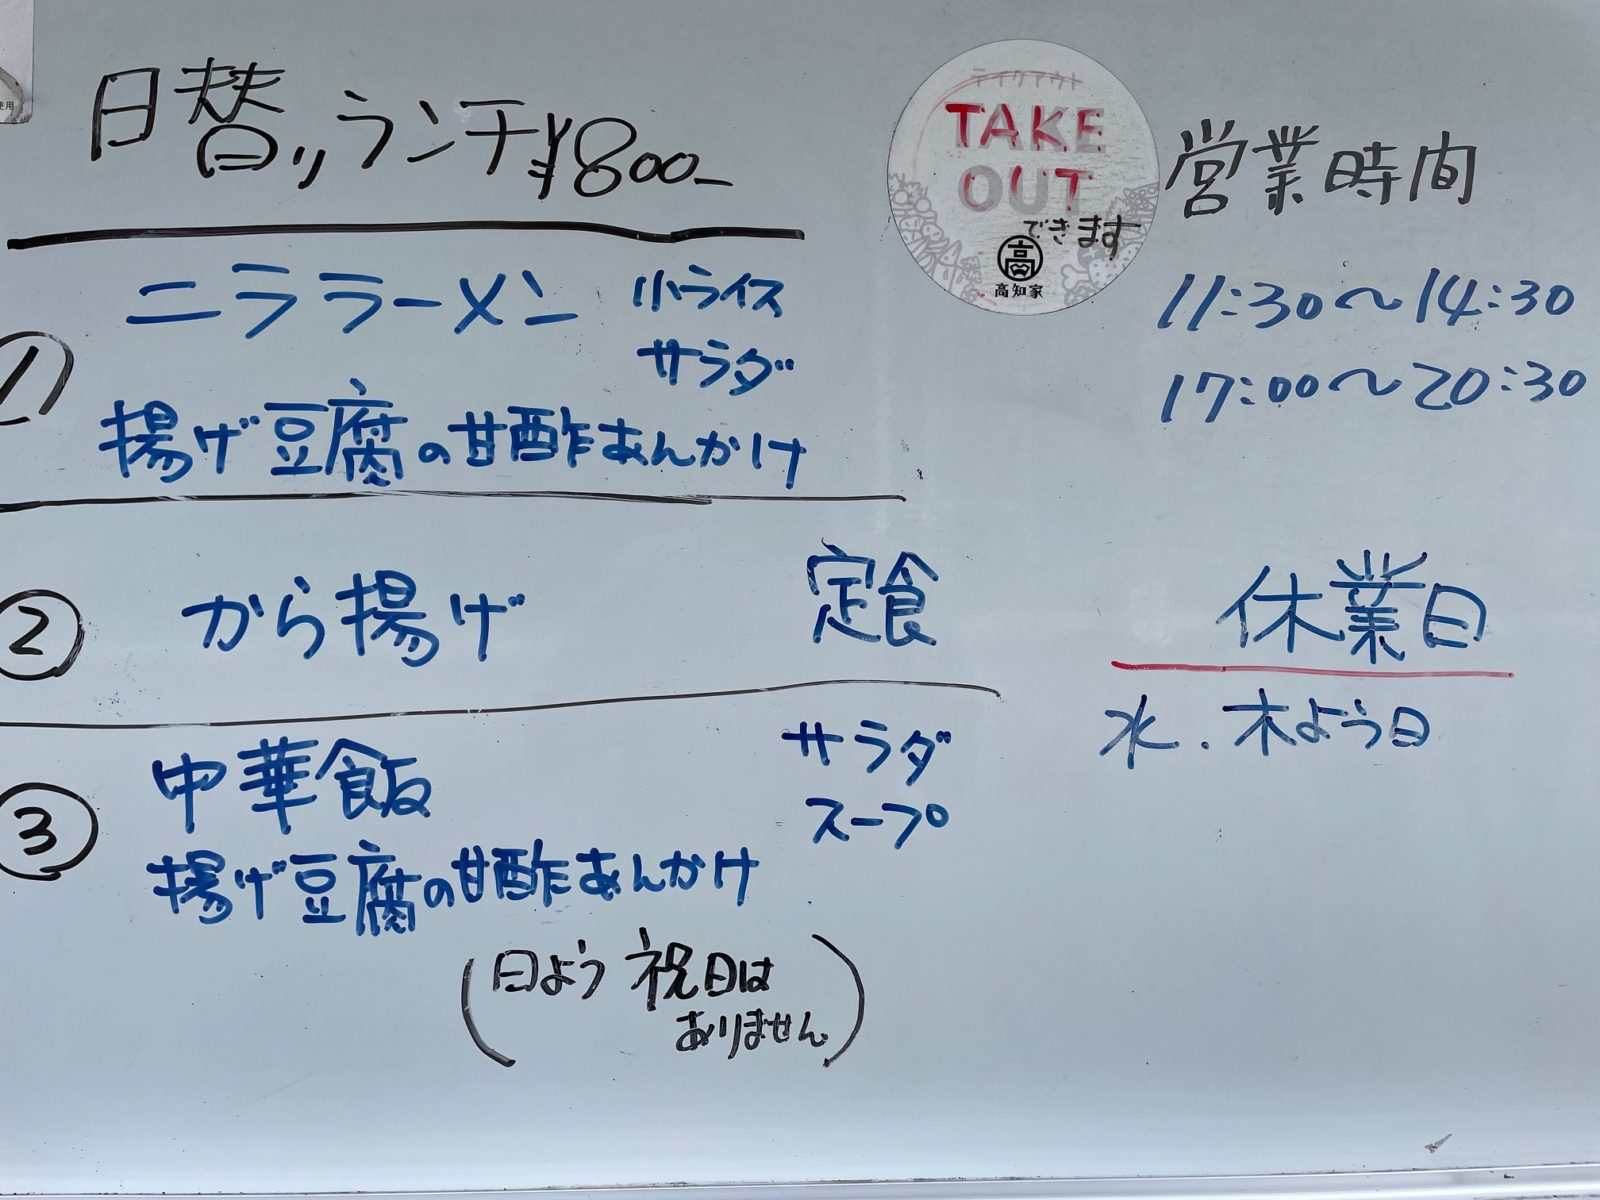 日替りランチ¥800-
① ニララーメン 小ライス
サラダ
揚げ豆腐の甘酢あんかけ
② から揚げ 定食
③ 中華飯 サラダ
スープ
揚げ豆腐の甘酢あんかけ
(日よう 祝日は
ありません)
テイクアウト
TAKE
OUT
できます
高
高知家
営業時間
11:30〜14:30
17:00〜20:30
休業日
水.木よう日
使用